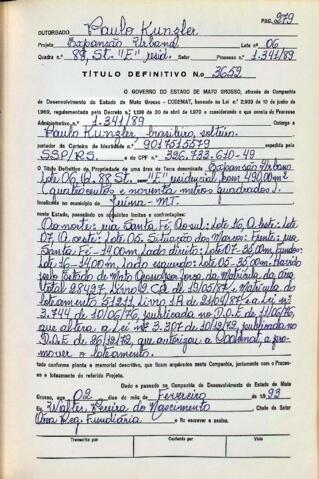 PAG. 279
OUTORGADO Paulo Kunzler
Projeto Expansão Urbana Lote nº 06
Quadra n.º 88, St. "E" resid. Processo n.º 1.341/89
TÍTULO DEFINITIVO N.o 3652
O GOVERNO DO ESTADO DE MATO GROSSO, através da Companhia
de Desenvolvimento do Estado de Mato Grosso - CODEMAT, baseado na Lei n.º 2.933 de 10 de junho
1969, regulamentada pelo Decreto n.º 1.138 de 30 de abril de 1970 e considerando o que consta do Processo
Administrativo n.º 1.341/89 Outorga a
Paulo Kunzler, brasileiro, solteiro.
portador da Carteira de Identidade n.º 9017515579 expedida
SSP/RS. e do CPF n.º 326.733.610-49
O Título Definitivo da Propriedade de uma área de terra denominada Expansão Urbana
Lote 06 Q. 88 St. "E" residencial, com 490,00m²
(quatrocentos e noventa metros quadrados).
localizada no município de Juína - MT.
neste Estado, possuindo os seguintes limites e confrontações:
Ao norte: rua Santa Fé, Ao sul: Lote 16, A leste: Lote
07, A oeste: Lote 05. Situação dos Marcos: Frente: rua
Santa Fé - 14,00m, Lado direito: Lote 07 - 35,00m, Fundos:
Lote 16 - 14,00m, Lado esquerdo: Lote 05 - 35,00m. Havido
pelo Estado de Mato Grosso por força da Matrícula da área
total 28427, Livro 2 de 19/05/87, e Matrícula do
loteamento 51211, Livro 1A de 21/09/87 e a Lei nº
3.744 de 10/06/76, publicada no D.O.E de 11/06/76,
que altera a Lei nº 3.307 de 10/12/72, publicada no
D.O.E de 26/12/72, que autorizou a Codemat, a pro-
mover o loteamento.
tudo conforme planta e memorial descritivo, que ficam arquivados nesta Companhia, juntamente com o Processo
e loteamento do referido Projeto.
Dado e passado na Companhia de Desenvolvimento do Estado de Mato
Grosso, aos 02 dias do mês de Fevereiro de 1.993
Eu Walter Pereira do Nascimento Chefe do Setor
Reg. Fundiária o fiz escrever e assino.
Transcrito por Conferido por Visto